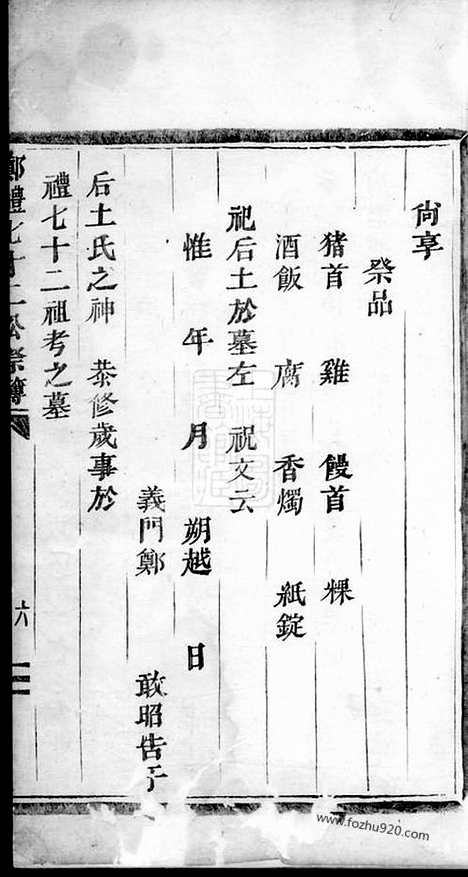 尙享
祭品
猪首　雞　饅首　粿
酒飯　腐　香燭　紙錠
祀后土於墓左　祝文云
惟　年　月　朔越　日
義門鄭　敢昭告于
后土氏之神　恭修歲事於
禮七十二祖考之墓
鄭禮七十二公祭簿
六
www.fozhu920.com